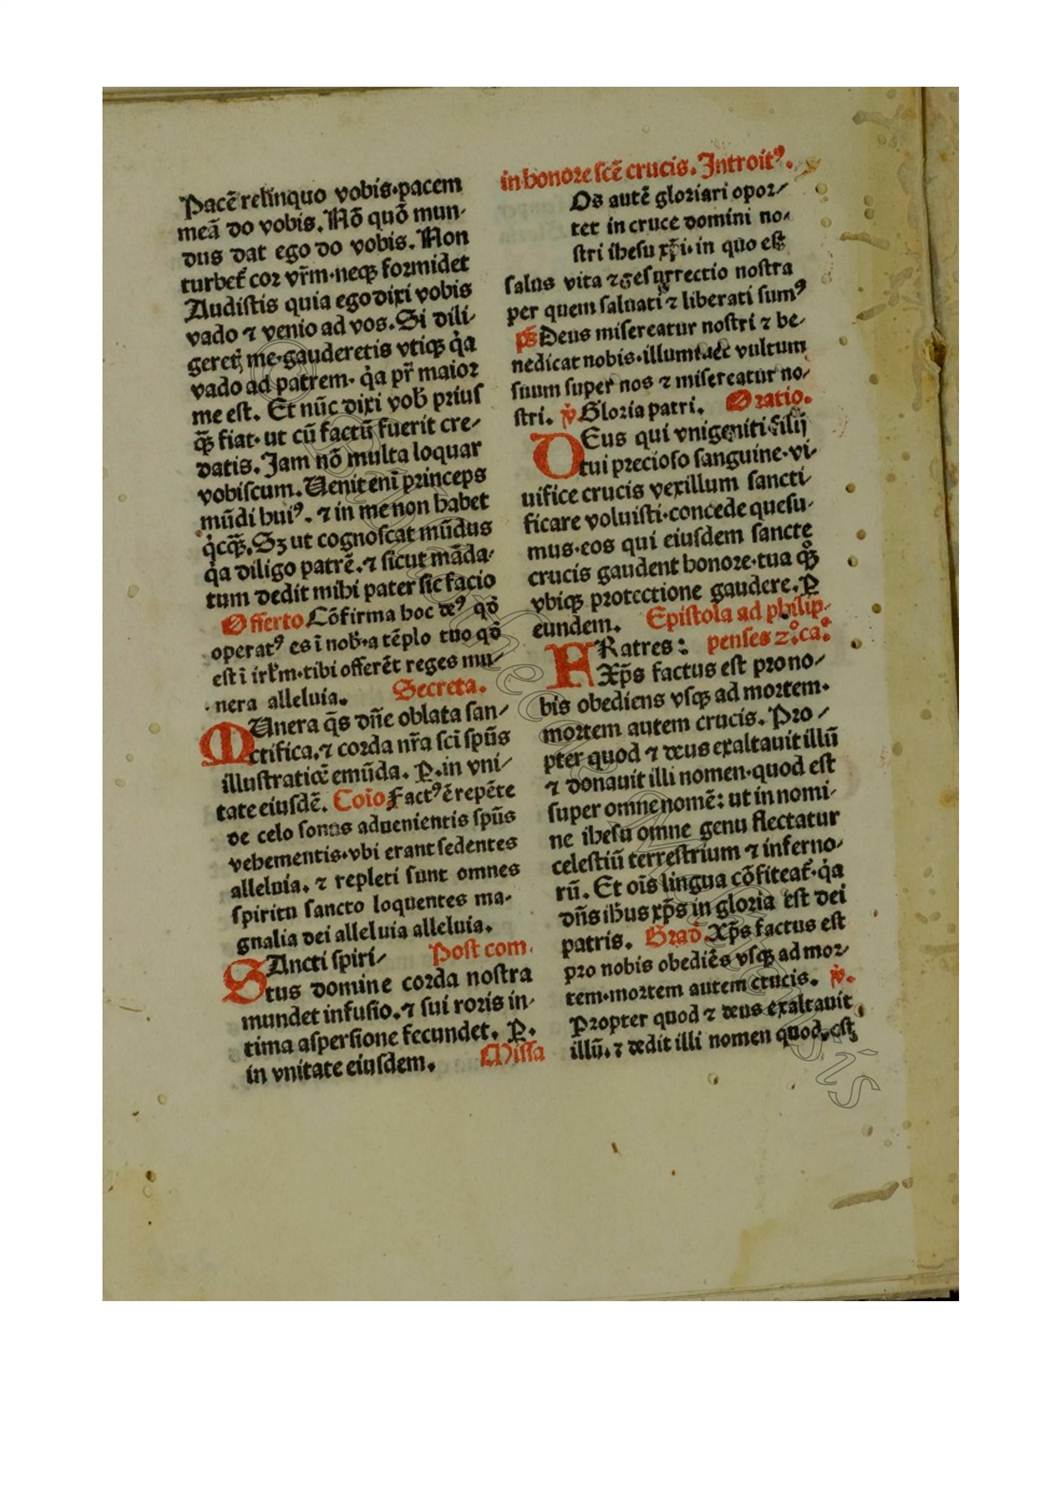 Pacē relinquo vobis·pacem
meā do vobis. Nō quō mun-
dus dat ego do vobis. Non
turbet̄ cor vr̄m·neqꝫ formidet
Audistis quia ego dixi vobis
vado ⁊ venio ad vos. Si dili-
geret̄ me·gauderetis vtiqꝫ q̇a
vado ad patrem· q̇a pr̄ maior
me est. Et nūc dixi vob̄ prius
qꝫ̄ fiat· ut cū factū fuerit cre-
datis. Jam nō multa loquar
vobiscum. Uenit enī princeps
mūdi huiꝰ. ⁊ in me non habet
q̇cqꝫ̄. Sꝫ ut cognoscat mūdus
q̇a diligo patrē. ⁊ sicut māda-
tum dedit mihi pater sic facio
Offerto Cōfirma hoc deꝰ qḋ
operatꝰ es ī nob̄·a tēplo tuo qḋ
est ī irl̄m·tibi offerēt reges mu-
nera alleluia. Secreta.
MUnera q̄s dn̄e oblata san-
ctifica. ⁊ corda nr̄a sc̄i sp̄us
illustratiōe emūda. P̱. in vni-
tate eiusdē. Coīo Factꝰ ē repēte
de celo sonus aduenientis sp̄us
vehementis·vbi erant sedentes
alleluia. ⁊ repleti sunt omnes
spiritu sancto loquentes ma-
gnalia dei alleluia alleluia.
SAncti spiri- Post com.
tus domine corda nostra
mundet infusio. ⁊ sui roris in-
tima aspersione fecundet. P̱.
in vnitate eiusdem. Missa
in honore scē crucis. Introitꝰ.
Os autē gloriari opor-
tet in cruce domini no-
stri ihesu xp̄i·in quo est
salus vita ⁊ resurrectio nostra
per quem saluati ⁊ liberati sumꝰ
ps̄ Deus misereatur nostri ⁊ be-
nedicat nobis·illuminet vultum
suum super nos ⁊ misereatur no-
stri. v̇ Gloria patri. Oratio.
DEus qui vnigeniti filij
tui precioso sanguine·vi-
uifice crucis vexillum sancti-
ficare voluisti·concede quesu-
mus·eos qui eiusdem sancte
crucis gaudent honore·tua qꝫ̊
vbiqꝫ protectione gaudere. P̱
eundem. Epistola ad philip-
FRatres: penses 2̊. cå.
Xp̄s factus est pro no-
bis obediens vsqꝫ ad mortem·
mortem autem crucis. Pro-
pter quod ⁊ deus exaltauit illū
⁊ donauit illi nomen·quod est
super omne nomē: ut in nomi-
ne ihesu omne genu flectatur
celestiū terrestrium ⁊ inferno-
rū. Et oīs lingua cōfiteat̄·q̇a
dn̄s ih̄us xp̄s in gloria est dei
patris. Grad̄. Xp̄s factus est
pro nobis obediēs vsqꝫ ad mor-
tem·mortem autem crucis. v̇.
Propter quod ⁊ deus exaltauit
illū. ⁊ dedit illi nomen quod est